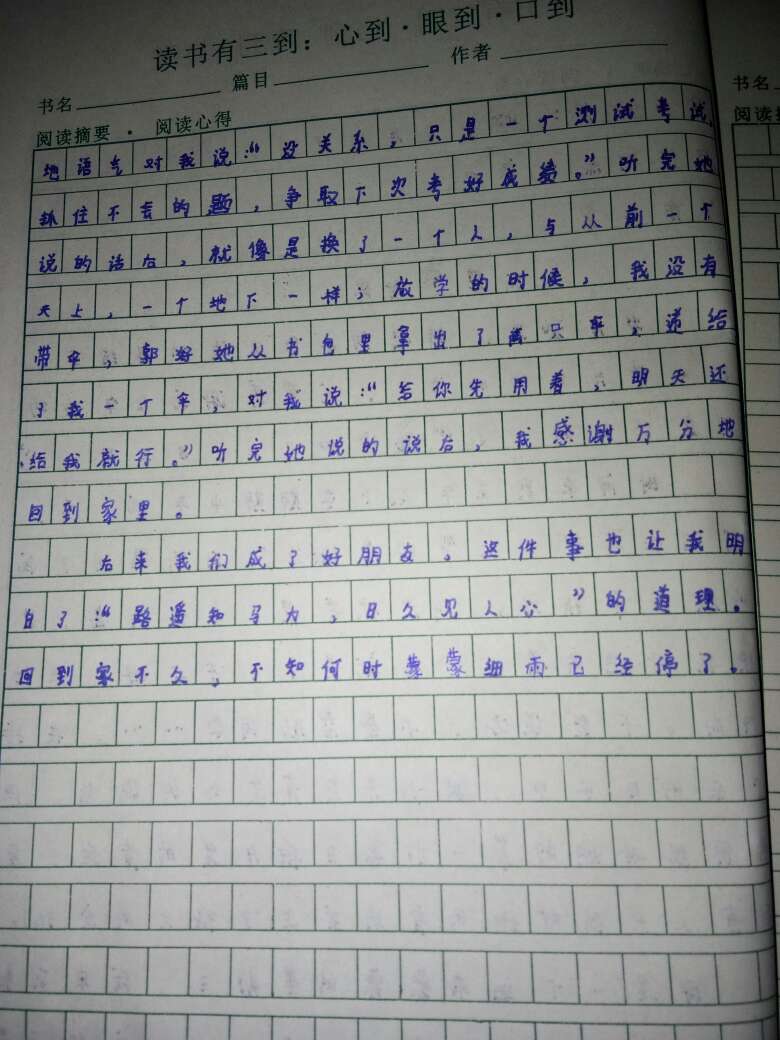 读书有三到：心到·眼到·口到
书名 篇目 作者
阅读摘要 · 阅读心得
地语气对我说：“没关系，只是一个测试考试，
抓住不会的题，争取下次考好成绩。”听完她
说的话后，就像是换了一个人，与从前一个
天上，一个地下一样；放学的时候，我没有
带伞，郭好她从书包里拿出了两只伞，递给
了我一个伞，对我说：“给你先用着，明天还
给我就行。”听完她说的说后，我感谢万分地
回到家里。
后来我们成了好朋友。这件事也让我明
白了：“路遥知马力，日久见人心”的道理。
回到家不久，不知何时蒙蒙细雨已经停了。
书名
阅读摘